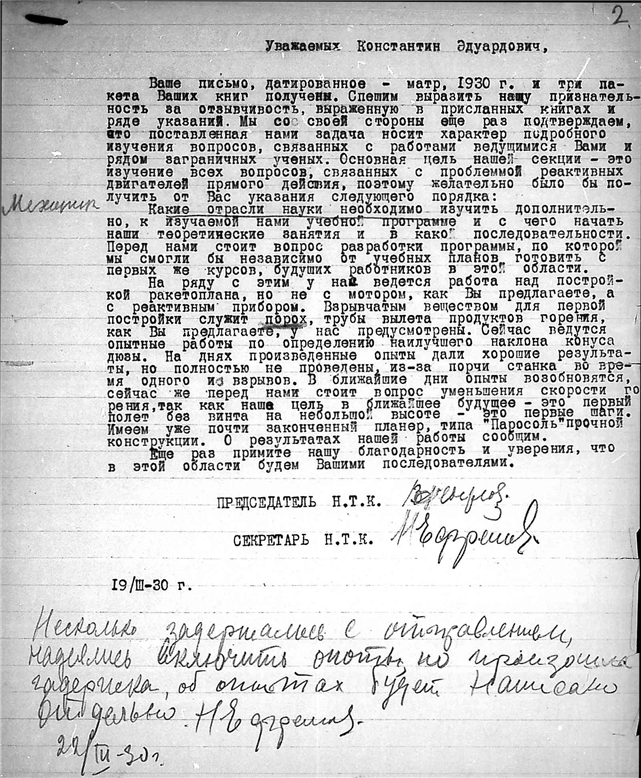 2
Уважаемых Константин Эдуардович,
Ваше письмо, датированное - матр, 1930 г. и три па-
кета Ваших книг получены. Спешим выразить нашу признатель-
ность за отзывчивость, выраженную в присланных книгах и
ряде указаний. Мы со своей стороны еще раз подтверждаем,
что поставленная нами задача носит характер подробного
изучения вопросов, связанных с работами ведущимися Вами и
рядом заграничных ученых. Основная цель нашей секции - это
изучение всех вопросов, связанных с проблеммой реактивных
двигателей прямого действия, поэтому желательно было бы по-
лучить от Вас указания следующего порядка:
Какие отрасли науки необходимо изучить дополнитель-
но, к изучаемой нами учебной программе и с чего начать
наши теоретические занятия и в какой последовательности.
Перед нами стоит вопрос разработки программы, по которой
мы смогли бы независимо от учебных планов, готовить с
первых же курсов, будуших работников в этой области.
На ряду с этим у нас ведется работа над построй-
кой ракетоплана, но не с мотором, как Вы предлагаете, а
с реактивным прибором. Взрывчатым веществом для первой
постройки служит порох, трубы вылета продуктов горения,
как Вы предлагаете, у нас предусмотрены. Сейчас ведутся
опытные работы по определению наилучшего наклона конуса
дюзы. На днях произведенные опыты дали хорошие результа-
ты, но полностью не проведены, из-за порчи станка во вре-
мя одного из взрывов. В ближайшие дни опыты возобновятся,
сейчас же перед нами стоит вопрос уменьшения скорости го
рения, так как наша цель в ближайшее будущее - это первый
полет без винта на небольшой высоте - это первые шаги.
Имеем уже почти законченный планер, типа "Паросоль" прочной
конструкции. О результатах нашей работы сообщим.
Еще раз примите нашу благодарность и уверения, что
в этой области будем Вашими последователями.
ПРЕДСЕДАТЕЛЬ Н.Т.К.
СЕКРЕТАРЬ Н.Т.К. Н Ефремов.
19/III-30 г.
Несколько задержались с отправлением,
надеялись включить опыты, но произошла
задержка, об опытах будет написано
отдельно. Н Ефремов.
22/III-30 г.